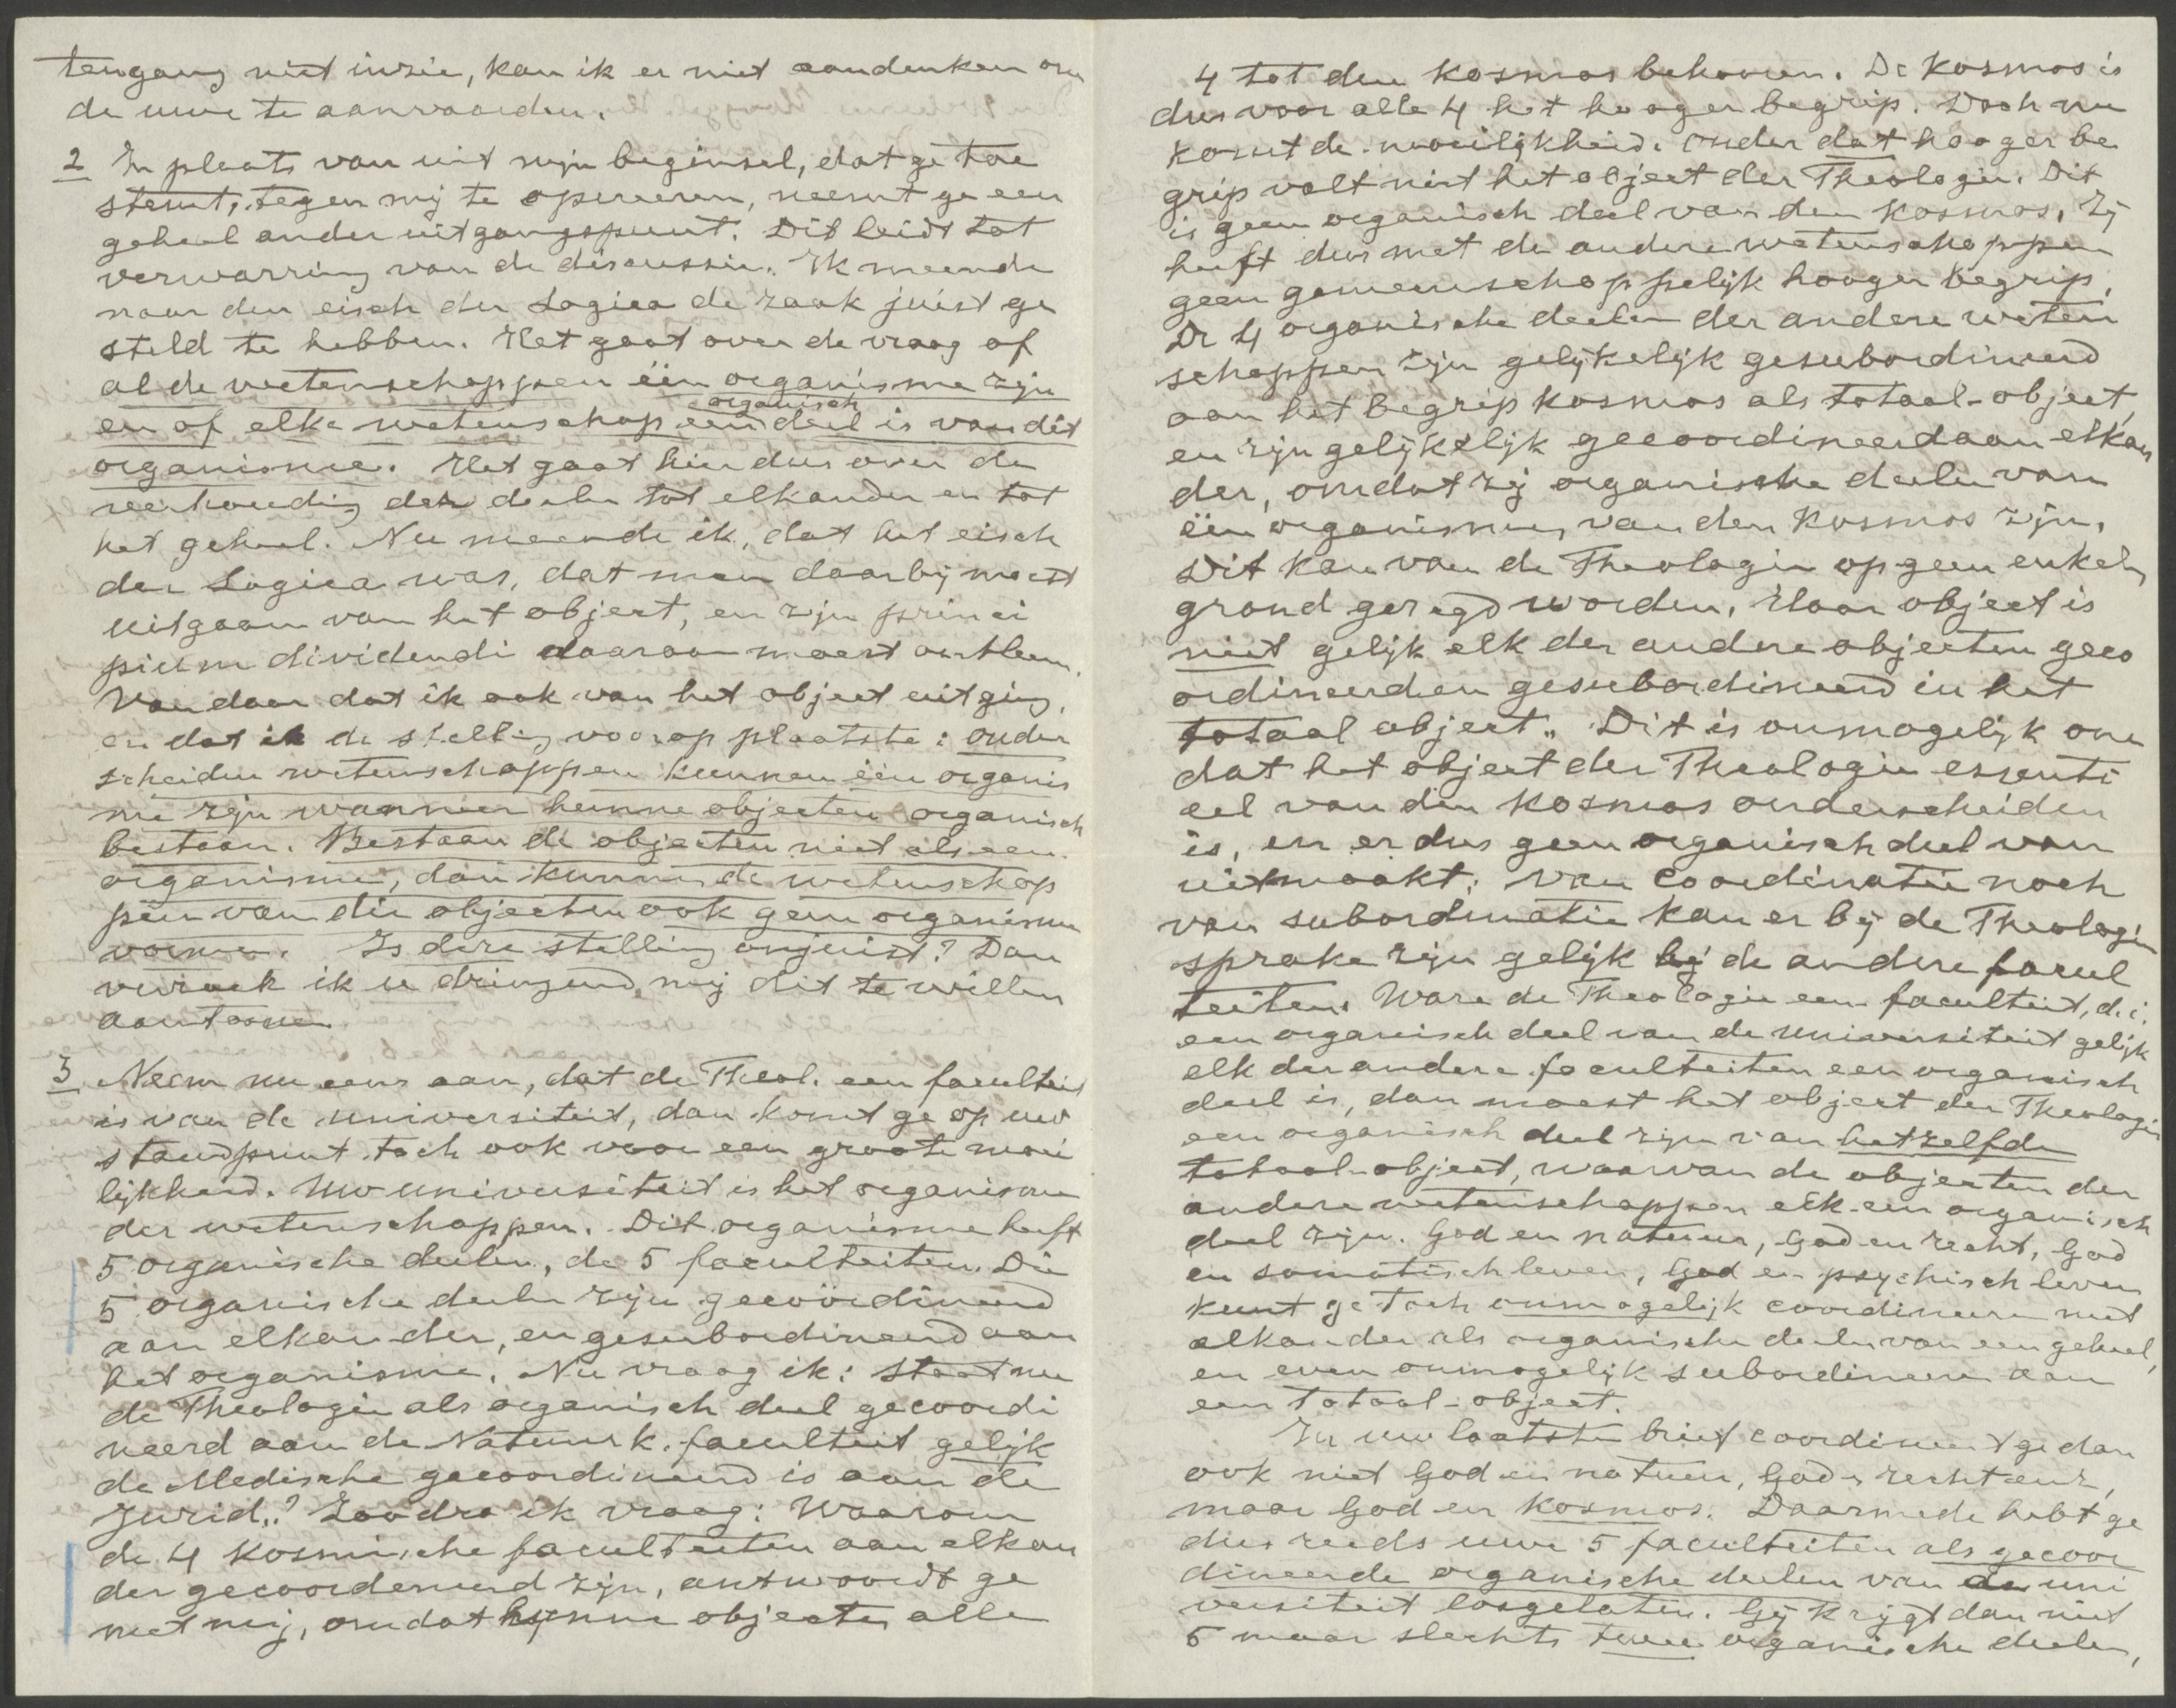 tengang niet inzie, kan ik er niet aandenken om
de uwe te aanvaarden.
2 In plaats van uit mijn beginsel, dat ge toe
stemt, tegen mij te opereeren, neemt ge een
geheel ander uitgangspunt. Dit leidt tot
verwarring van de discussie. Ik meende
naar den eisch der Logica de zaak juist ge
steld te hebben. Het gaat over de vraag of
al de wetenschappen één organisme zijn
en of elke wetenschap een organisch deel is van dit
organisme. Het gaat hier dus over de
verhouding der deelen tot elkander en tot
het geheel. Nu meende ik, dat het eisch
der Logica was, dat men daarbij moest
uitgaan van het object, en zijn princi
pium dividendi daaraan moest ontleenen.
Vandaar dat ik ook van het object uitging,
en dat ik de stelling voorop plaatste: onder
scheiden wetenschappen kunnen één organis
me zijn wanneer hunne objecten organisch
bestaan. Bestaan de objecten niet als een
organisme, dan kunnen de wetenschap
pen van die objecten ook geen organisme
vormen. Is deze stelling onjuist? Dan
verzoek ik u dringend, mij dit te willen
aantoonen.
3 Neem nu eens aan, dat de Theol. een faculteit
is van de universiteit, dan komt ge op uw
standpunt toch ook voor een groote moei
lijkheid. Uw universiteit is het organisme
der wetenschappen. Dit organisme heeft
5 organische deelen, de 5 faculteiten. Die
5 organische deelen zijn gecoördineerd
aan elkander, en gesubordineerd aan
het organisme. Nu vraag ik: staat nu
de Theologie als organisch deel gecoordi
neerd aan de Natuurk. faculteit gelijk
de Medische gecoordineerd is aan de
Jurid.? Zoodra ik vraag: Waarom
de 4 kosmische faculteiten aan elkan
der gecoordeneerd zijn, antwoordt ge
met mij, omdat hunne objecten alle
4 tot den kosmos behooren. De kosmos is
dus voor alle 4 het hooger begrip. Doch nu
komt de moeilijkheid. Onder dat hooger be
grip valt niet het object der Theologie. Dit
is geen organisch deel van den kosmos. Zij
heeft dus met de andere wetenschappen
geen gemeenschappelijk hooger begrip.
De 4 organische deelen der andere weten
schappen zijn gelijkelijk gesubordineerd
aan het begrip kosmos als totaal-object,
en zijn gelijkelijk gecoordineerd aan elkan
der, omdat zij organische deelen van
één organisme, van den kosmos zijn.
Dit kan van de Theologie op geen enkelen
grond gezegd worden. Haar object is
niet gelijk elk der andere objecten geco
ordineerd en gesubordineerd in het
totaal object. Dit is onmogelijk om
dat het object der Theologie essenti
eel van den kosmos onderscheiden
is, en er dus geen organisch deel van
uitmaakt. Van coordinatie noch
van subordinatie kan er bij de Theologie
sprake zijn gelijk bij de andere facul
teiten. Ware de Theologie een faculteit, d.i.
een organisch deel van de universiteit gelijk
elk der andere faculteiten een organisch
deel is, dan moest het object der Theologie
een organisch deel zijn van hetzelfde
totaal-object, waarvan de objecten der
andere wetenschappen elk een organisch
deel zijn. God en natuur, God en recht, God
en somatisch leven, God en psychisch leven
kunt ge toch onmogelijk coordineeren met
elkander als organische deelen van een geheel,
en even onmogelijk subordineeren aan
een totaal-object.
In uw laatsten brief coordineert ge dan
ook niet God en natuur, God en recht enz,
maar God en kosmos. Daarmede hebt ge
dus reeds uwe 5 faculteiten als gecoor
dineerde organische deelen van de uni
versiteit losgelaten. Gij krijgt dan niet
5 maar slechts twee organische deelen,